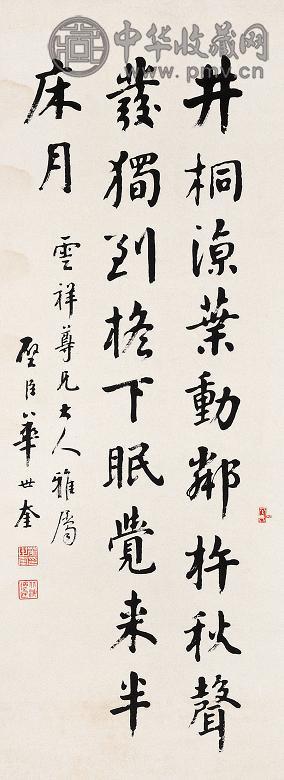 中华收藏网
www.pmv.cn
井桐涼葉動鄰杵秋聲
發獨到檐下眠覺來半
床月
雲祥尊兄大人雅屬
璧臣華世奎